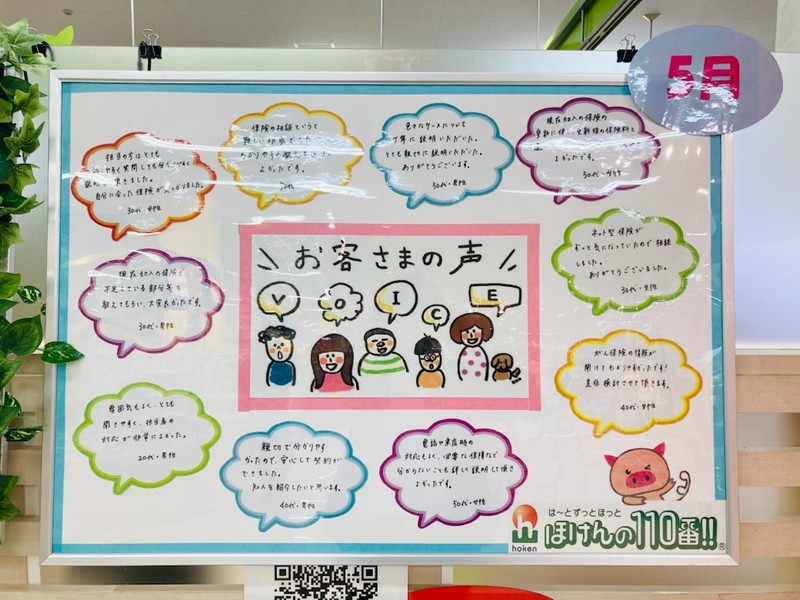 5月
担当の方はとても
話しやすく質問しても分かりやすく
自分に合った保険が見つかりました。
30代・女性
保険の相談というと
よかったです。
色々なケースについて
丁寧に説明いただいた。
とても親切に説明いただいた。
ありがとうございます。
30代・男性
現在加入の保険の
よかったです。
50代・女性
現在加入の保険で
不足している部分等を
教えてもらい、大変良かったです。
30代・男性
お客さまの声
VOICE
ネット型保険が
ずっと気になっていたので相談
しました。
ありがとうございました。
30代・男性
がん保険の保障が
聞けてわかりやすかったです!
是非検討させて頂きます。
40代・女性
雰囲気もよく、とても
聞きやすく、担当者の
対応が非常によかった。
20代・男性
親切で分かりやす
かったので、安心して契約が
できました。
知人を紹介したいと思います。
40代・男性
電話や来店時の
対応もよく、必要な保障など
分からないことも詳しく説明して頂き
よかったです。
50代・女性
は〜とずっとほっと
hoken
ほけんの110番!!®